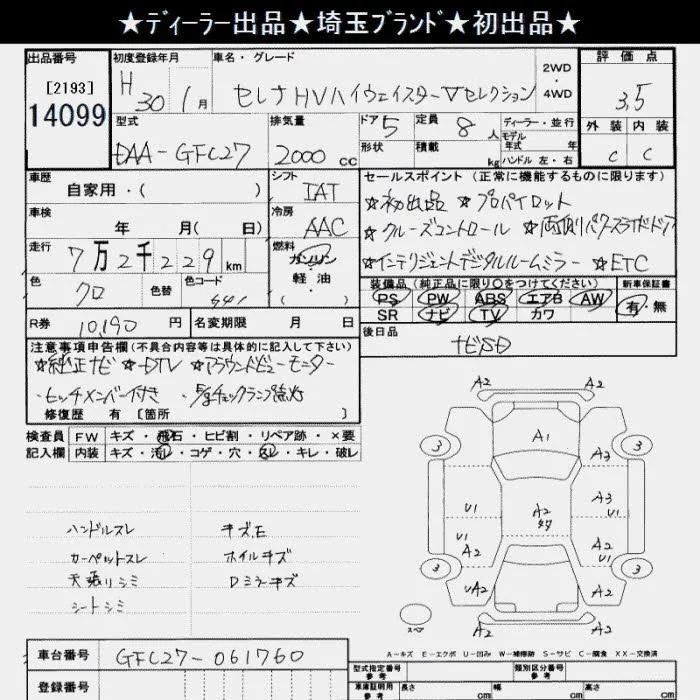 ★ディーラー出品★埼玉ブランド★初出品★
出品番号 初度登録年月 車名・グレード 2WD・4WD 評価点
[2193] H 30 1月 セレナHVハイウェイスターVセレクション 3.5
14099 型式 排気量 ドア 5 定員 8人 ディーラー・並行 外装 内装
DAA-GFC27 2000 cc 形状 積載 kg モデル年式 年 ハンドル 左・右 C C
車歴 自家用・( ) シフト IAT セールスポイント(正常に機能するものに限ります)
車検 年 月( 日) 冷房 AAC ★初出品 ★プロパイロット
★クルーズコントロール ★両側パワースライドドア
走行 7万2千229km 燃料 ガソリン 軽油 ( )
★インテリジェントデジタルルームミラー ★ETC
色 クロ 色替 色コード 441
装備品(純正品に限り○をつけてください) 新車保証書
PS PW ABS エアB AW 有・無
SR ナビ TV カワ
R券 10,190円 名変期限 月 日 後日品
ナビSD
注意事項申告欄(不具合内容等は具体的に記入して下さい)
★純正ナビ ★DTV ★アラウンドビューモニター
・ヒッチメンバー付き
修復歴 有 [箇所 ]
検査員 FW キズ・飛石・ヒビ割・リペア跡・×要
記入欄 内装 キズ・汚レ・コゲ・穴・スレ・キレ・破レ
ハンドルスレ キズE
カーペットスレ ホイルキズ
天張りシミ Dミラーキズ
シートシミ
A2 A2
3 A1 3
A2
A3
U1 A2 U1
A2 A2
U1
3 3
UA2 A2
スペア A2 A2
A-キズ E-エクボ U-凹み W-補修跡 S-サビ C-腐食 XX-交換済
車台番号 GFC27-061760
型式指定番号 参考 類別区分番号 参考
登録番号 車庫証明用 参考 長さ cm 幅 cm 高さ cm